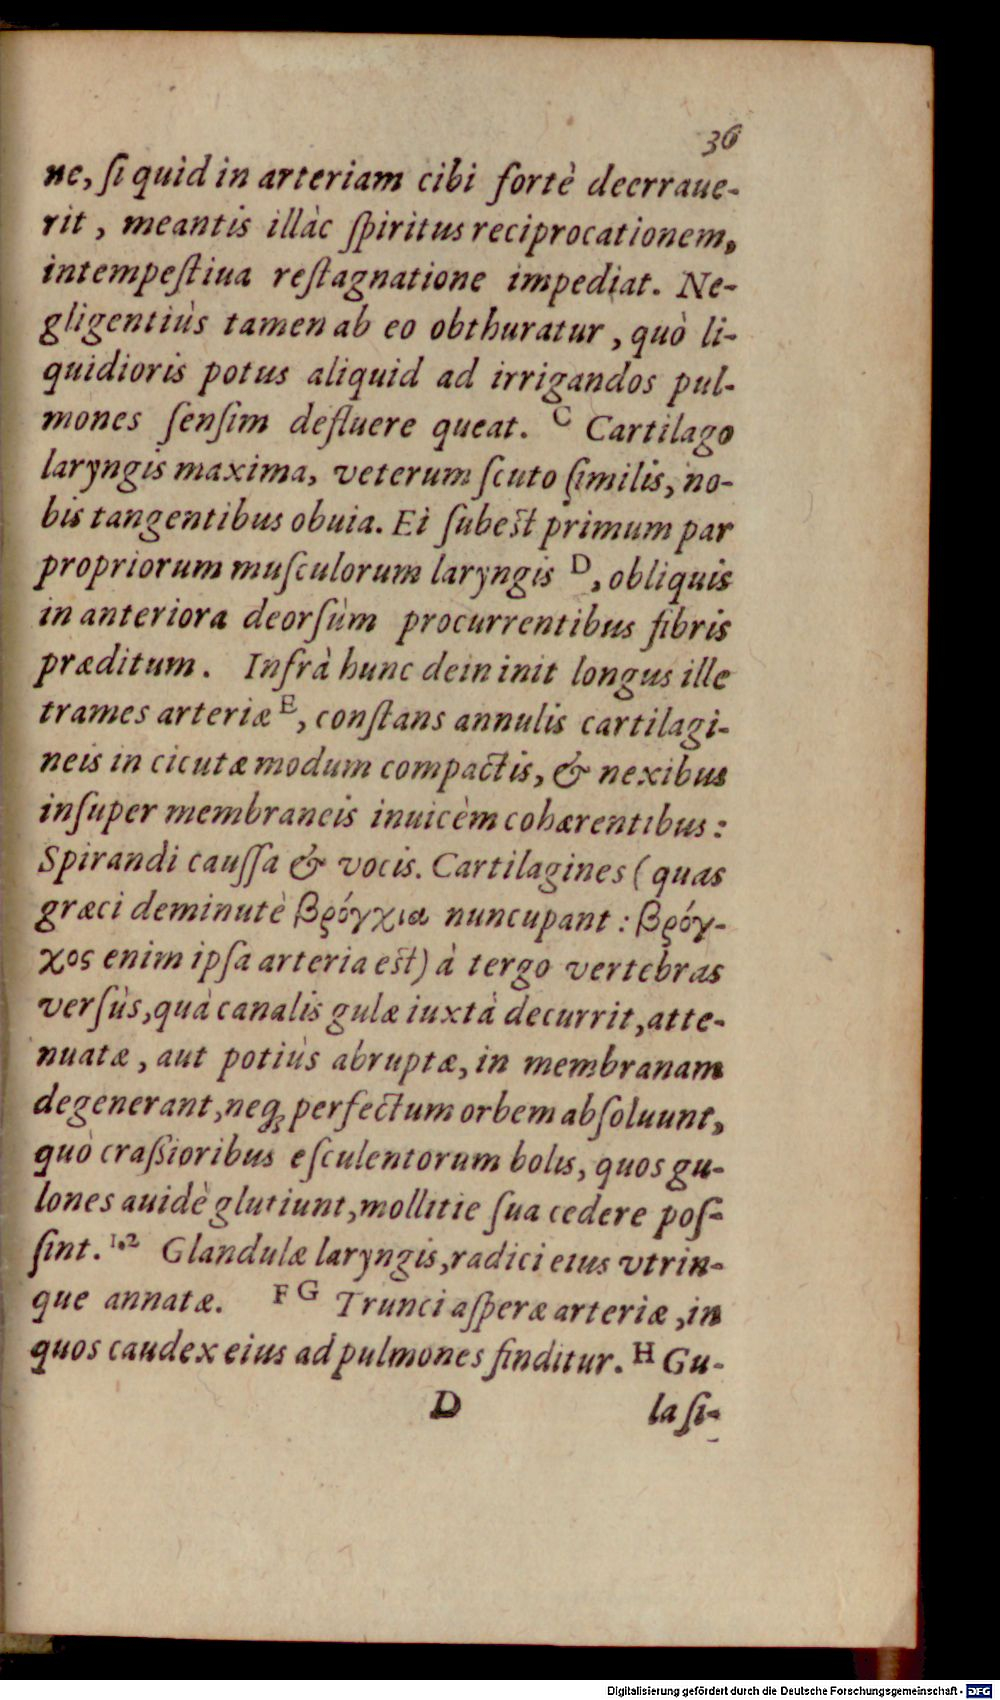 36
ne, ſi quid in arteriam cibi fortè deerraue-
rit, meantis illàc ſpiritus reciprocationem,
intempeſtiua reſtagnatione impediat. Ne-
gligentiùs tamen ab eo obthuratur, quò li-
quidioris potus aliquid ad irrigandos pul-
mones ſenſim defluere queat. C Cartilago
laryngis maxima, veterum ſcuto ſimilis, no-
bis tangentibus obuia. Ei ſubeſt primum par
propriorum muſculorum laryngis D, obliquis
in anteriora deorſùm procurrentibus fibris
præditum. Infrà hunc dein init longus ille
trames arteriæ E, conſtans annulis cartilagi-
neis in cicutæ modum compactis, & nexibus
inſuper membraneis inuicèm cohærentibus:
Spirandi cauſſa & vocis. Cartilagines (quas
græci deminutè βρόγχια nuncupant: βρόγ-
χος enim ipſa arteria eſt) à tergo vertebras
verſùs, quà canalis gulæ iuxtà decurrit, atte-
nuatæ, aut potiùs abruptæ, in membranam
degenerant, neq; perfectum orbem abſoluunt,
quò craßioribus eſculentorum bolis, quos gu-
lones auidè glutiunt, mollitie ſua cedere poſ-
ſint. 1.2 Glandulæ laryngis, radici eius vtrin-
que annatæ. F G Trunci aſperæ arteriæ, in
quos caudex eius ad pulmones finditur. H Gu-
D la ſi-
Digitalisierung gefördert durch die Deutsche Forschungsgemeinschaft - DFG